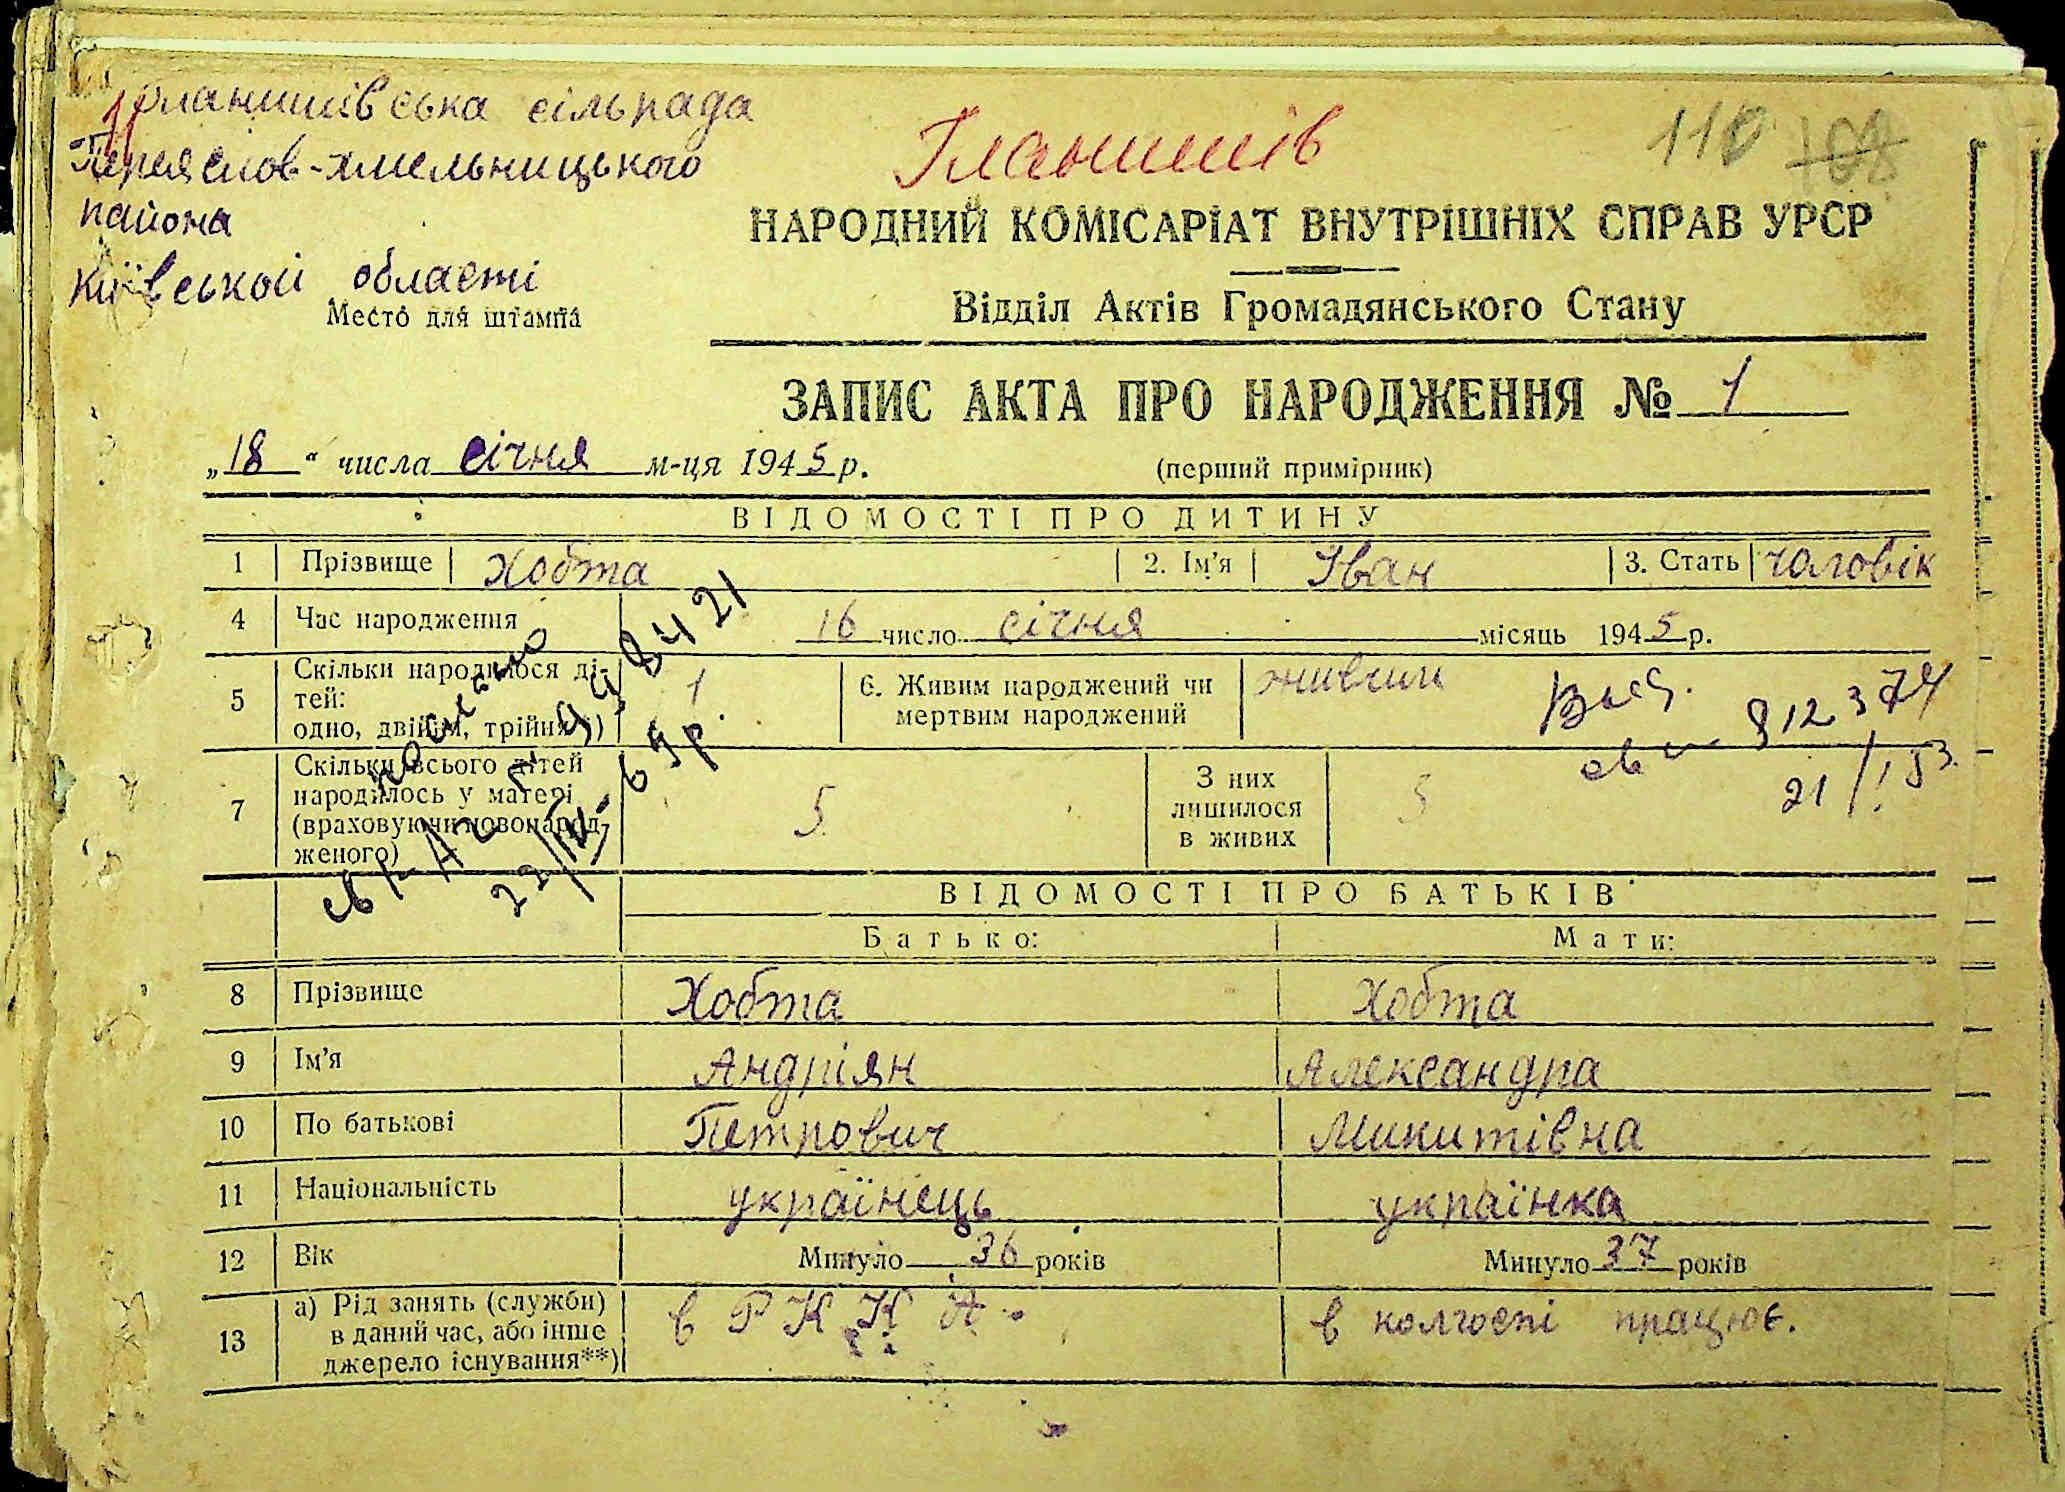 Гланишівська сільрада
Переяслов-хмельницького
района
Київськой області
Место для штампа
Гланишів
110 108
НАРОДНИЙ КОМІСАРІАТ ВНУТРІШНІХ СПРАВ УРСР
Відділ Актів Громадянського Стану
ЗАПИС АКТА ПРО НАРОДЖЕННЯ № 1
„18“ числа січня м-ця 1945 р. (перший примірник)
ВІДОМОСТІ ПРО ДИТИНУ
1 Прізвище Хобта 2. Ім'я Іван 3. Стать чоловік
4 Час народження 16 число січня місяць 1945 р.
5 Скільки народилося ді-
тей:
одно, двійни, трійня) 1 6. Живим народжений чи
мертвим народжений живим
Выд.
св 812374
21/I 53.
7 Скільки всього дітей
народилось у матері
(враховуючи новонарод-
женого) 5 З них
лишилося
в живих 5
22/IV- 69р.
ВІДОМОСТІ ПРО БАТЬКІВ
Батько: Мати:
8 Прізвище Хобта Хобта
9 Ім'я Андріян Александра
10 По батькові Петрович Микитівна
11 Національність українець українка
12 Вік Минуло 36 років Минуло 37 років
13 а) Рід занять (служби)
в даний час, або інше
джерело існування**) в РККА. в колгоспі працює.